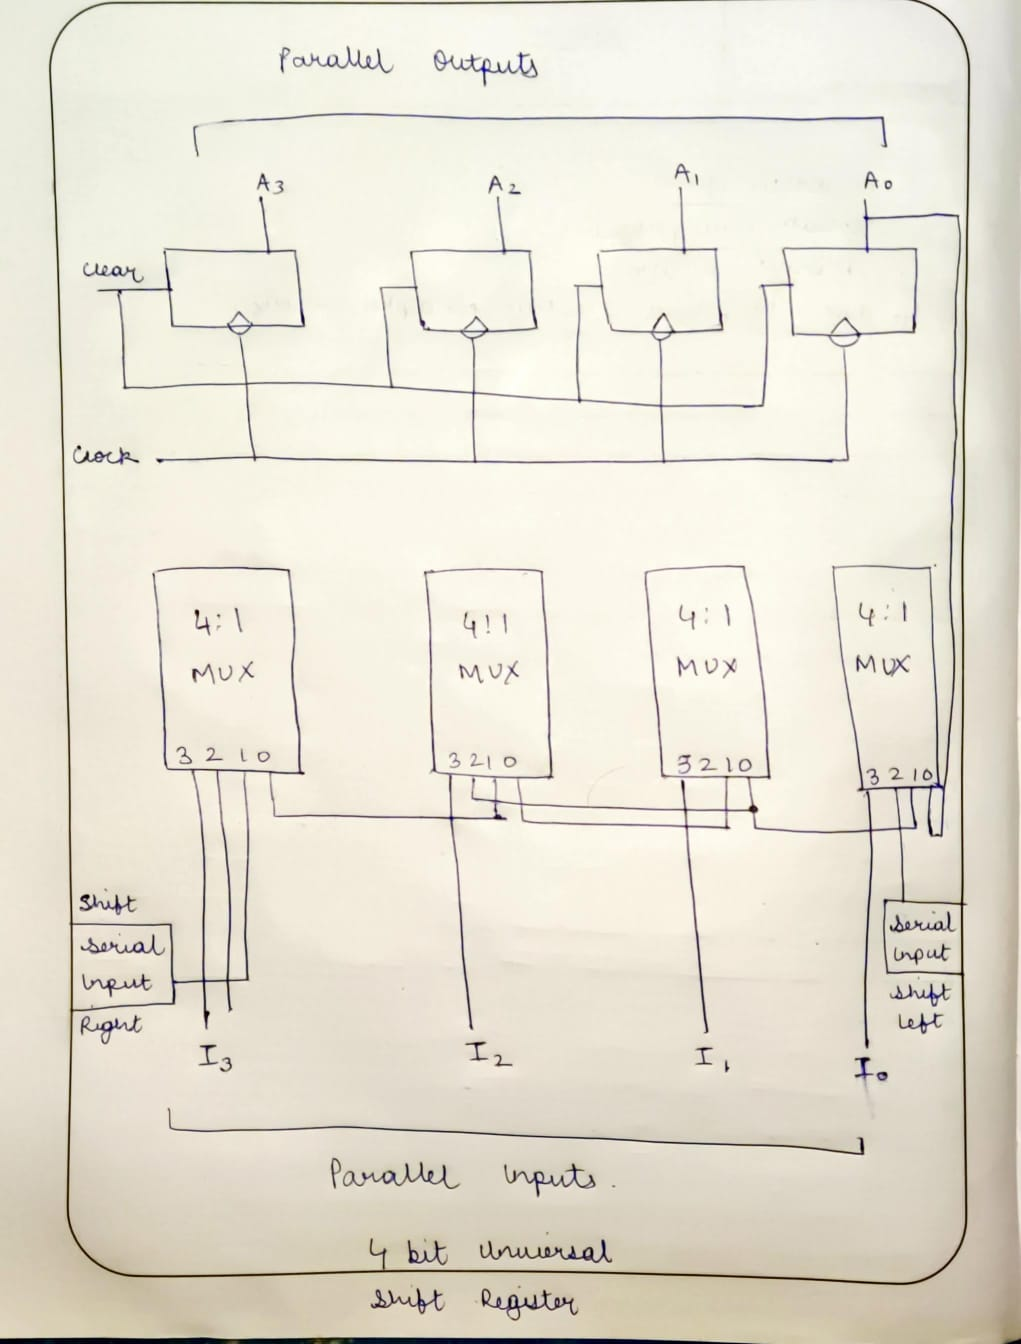 Parallel Outputs
A3 A2 A1 A0
Clear
Clock
4:1 4:1 4:1 4:1
MUX MUX MUX MUX
3 2 1 0 3 2 1 0 3 2 1 0 3 2 1 0
Shift
Serial
Input
Right
Serial
Input
Shift
Left
I3 I2 I1 I0
Parallel Inputs.
4 bit Universal
Shift Register